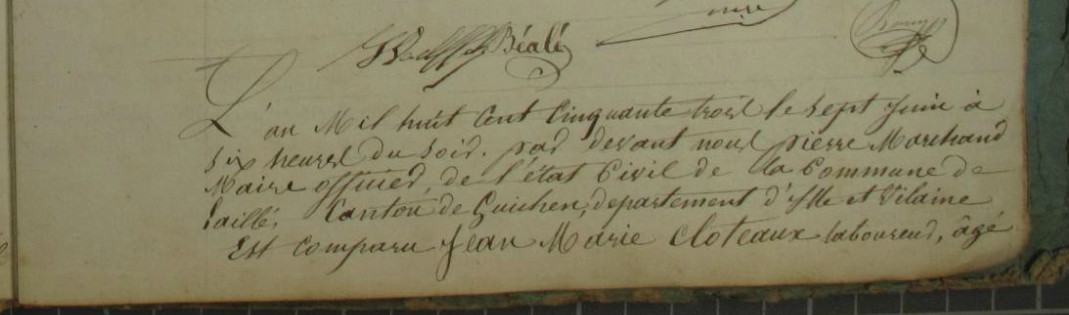 Béalé
L'an Mil huit Cent Cinquante trois le sept Juin à
six heures du soir. par devant nous pierre Marchand
Maire officier, de l'état Civil de la Commune de
Laillé, Canton de Guichen, departement d'Ille et Vilaine
Est comparu Jean Marie Cloteaux laboureur, âgé